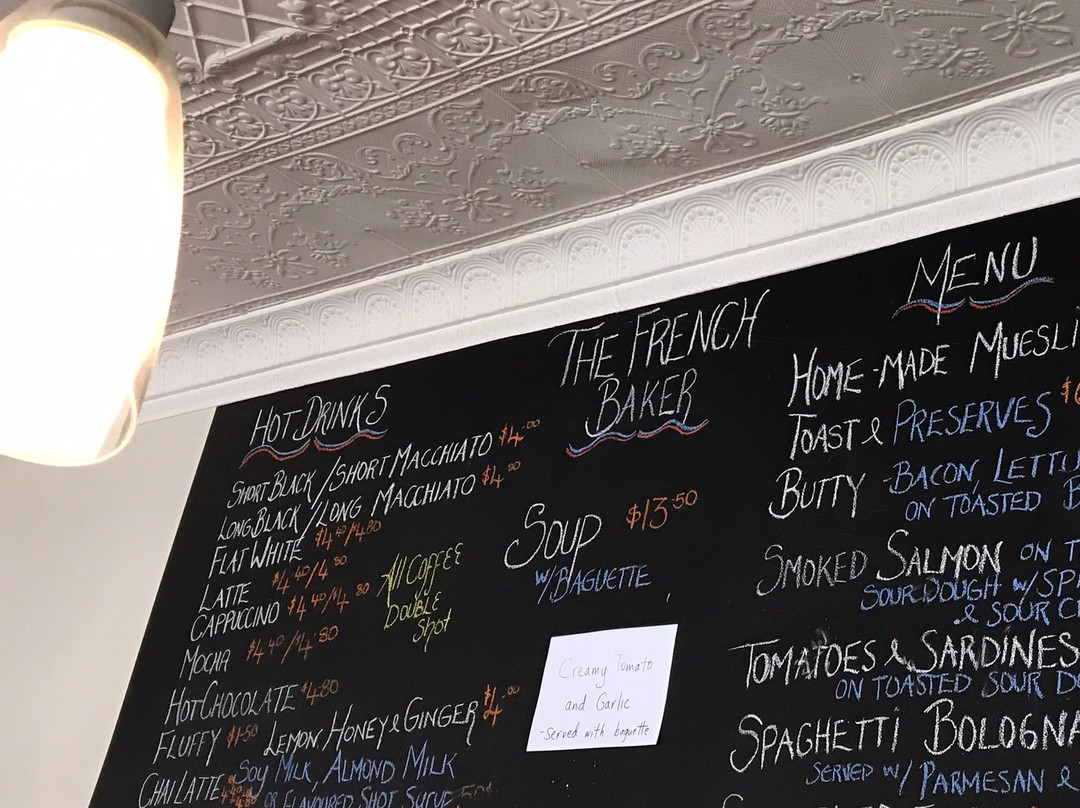 HOT DRINKS
SHORT BLACK / SHORT MACCHIATO $4.00
LONG BLACK / LONG MACCHIATO $4.80
FLAT WHITE $4.40/4.80
LATTE $4.40/4.80
CAPPUCCINO $4.40/4.80
MOCHA $4.40/4.80
All COFFEE
DOUBLE
Shot
HOT CHOCOLATE $4.80
FLUFFY $1.50
LEMON, HONEY & GINGER $4.00
CHAI LATTE
SOY MILK, ALMOND MILK
OR FLAVOURED SHOT
THE FRENCH
BAKER
SOUP $13.50
W/BAGUETTE
Creamy Tomato
and Garlic
-served with baguette
MENU
HOME-MADE MUESLI
TOAST & PRESERVES
BUTTY -BACON,
ON TOASTED
SMOKED SALMON ON
SOURDOUGH W/
& SOUR
TOMATOES & SARDINES
ON TOASTED SOUR
SPAGHETTI
SERVED W/ PARMESAN &